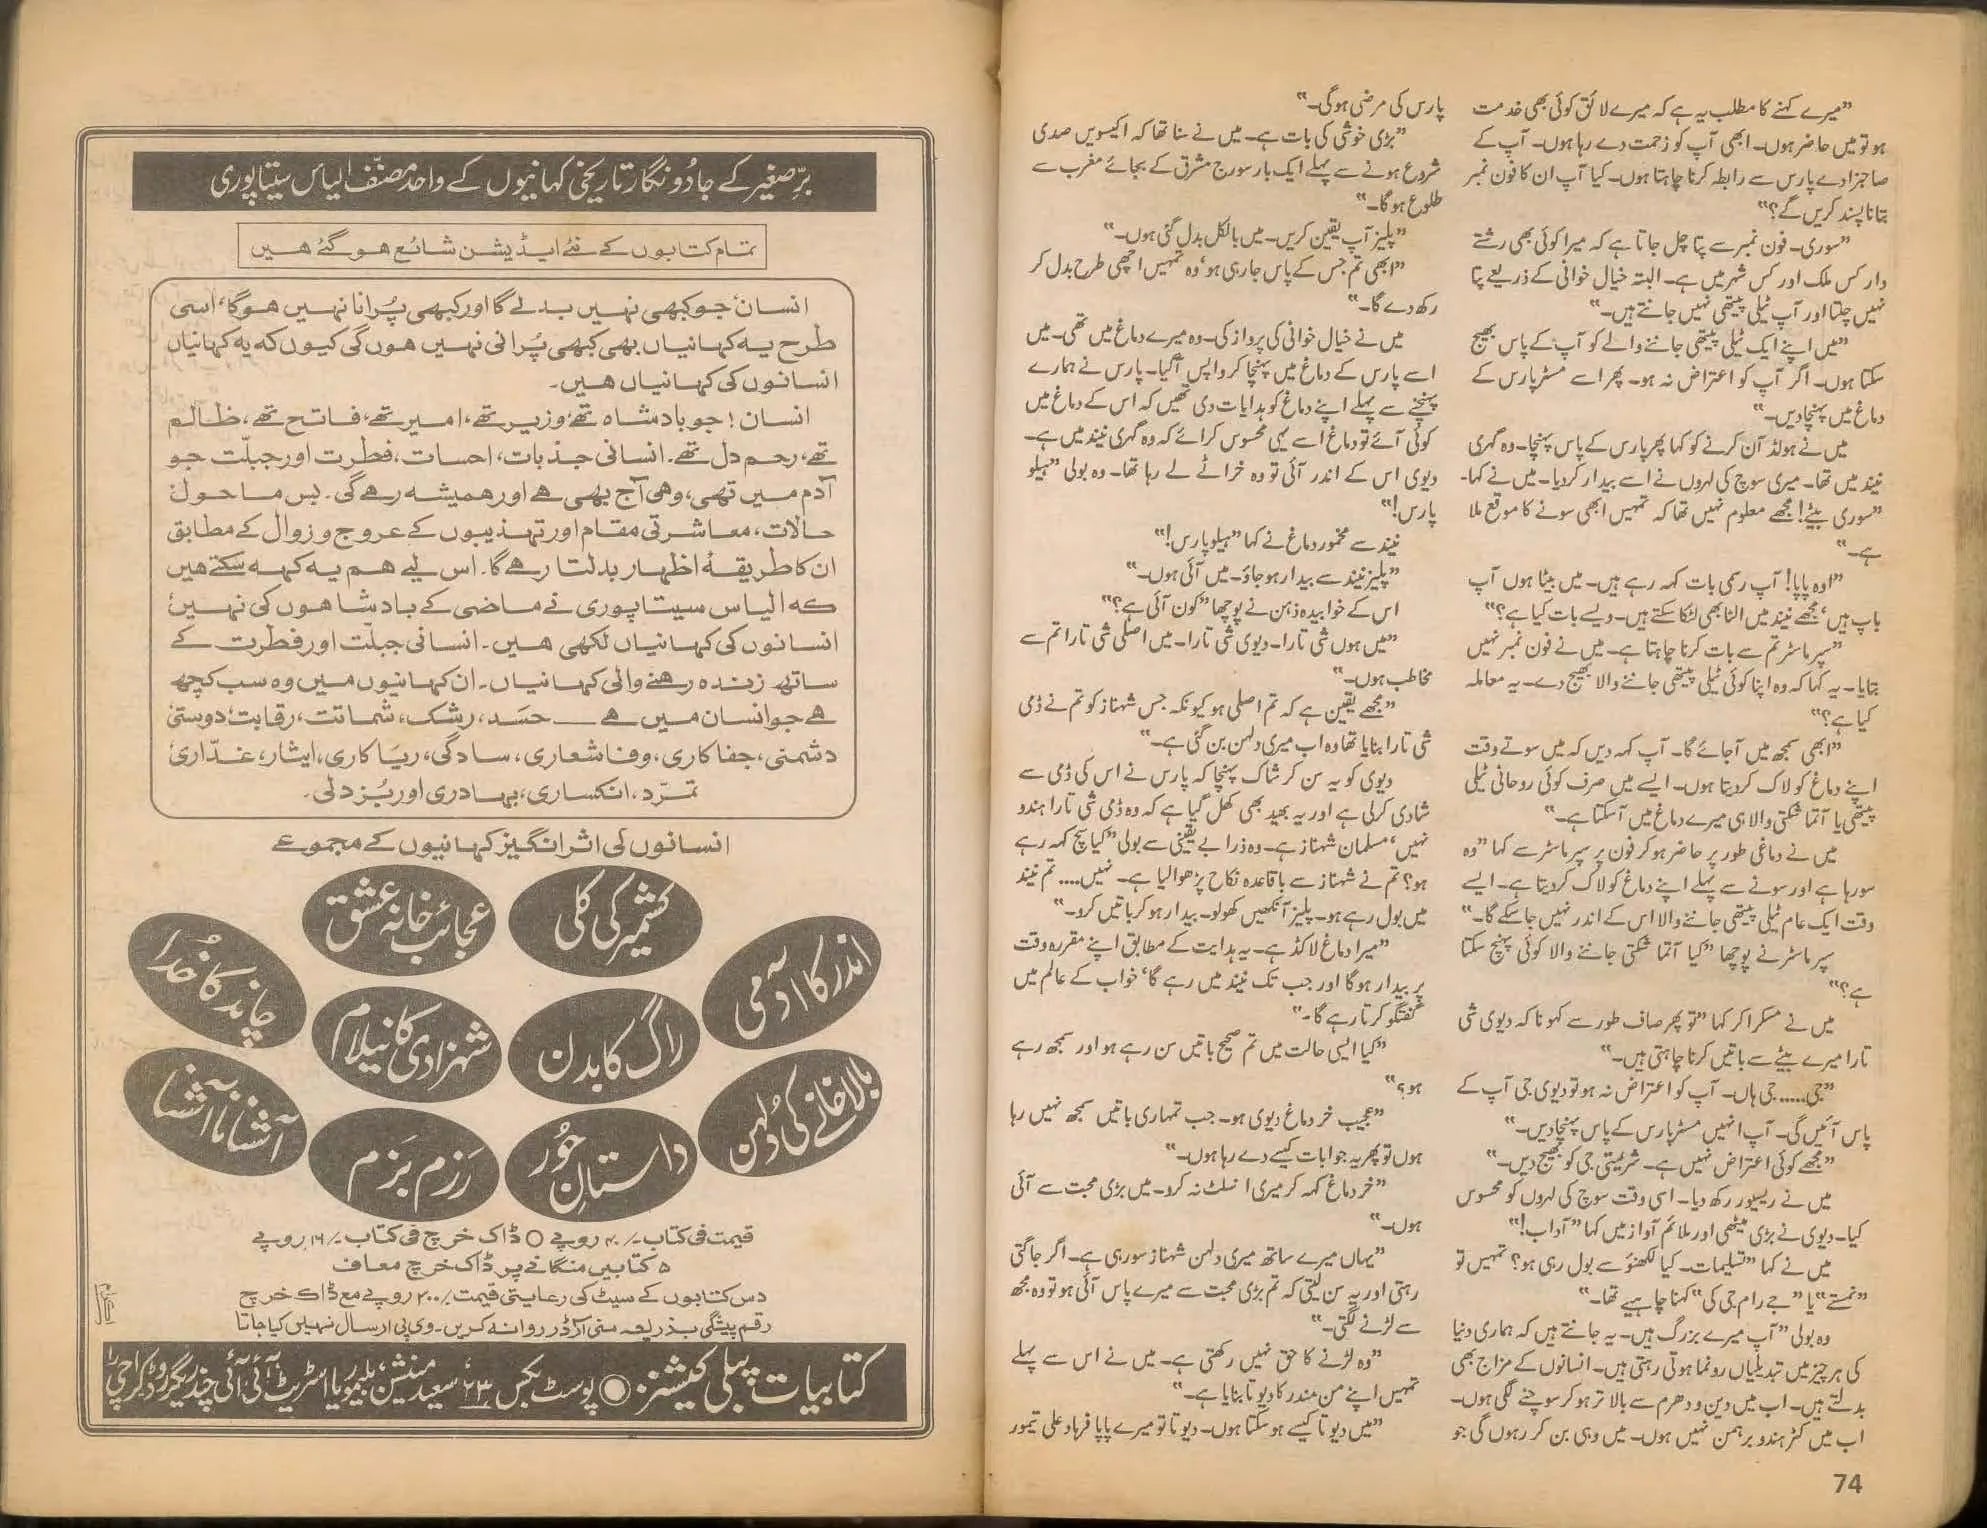 ”میرے کہنے کا مطلب یہ ہے کہ میرے لائق کوئی بھی خدمت
ہو تو میں حاضر ہوں۔ ابھی آپ کو زحمت دے رہا ہوں۔ آپ کے
صاحبزادے پارس سے رابطہ کرنا چاہتا ہوں۔ کیا آپ ان کا فون نمبر
بتانا پسند کریں گے؟“
”سوری۔ فون نمبر سے پتا چل جاتا ہے کہ میرا کوئی بھی رشتے
دار کس ملک اور کس شہر میں ہے۔ البتہ خیال خوانی کے ذریعے پتا
نہیں چلتا اور آپ ٹیلی پیتھی نہیں جانتے ہیں۔“
”میں اپنے ایک ٹیلی پیتھی جاننے والے کو آپ کے پاس بھیج
سکتا ہوں۔ اگر آپ کو اعتراض نہ ہو۔ پھر اسے مسٹر پارس کے
دماغ میں پہنچا دیں۔“
میں نے ہولڈ آن کرنے کو کہا پھر پارس کے پاس پہنچا۔ وہ گہری
نیند میں تھا۔ میری سوچ کی لہروں نے اسے بیدار کردیا۔ میں نے کہا۔
”سوری بیٹے! مجھے معلوم نہیں تھا کہ تمہیں ابھی سونے کا موقع ملا
ہے۔“
”اوہ پاپا! آپ رسمی بات کہہ رہے ہیں۔ میں بیٹا ہوں آپ
باپ ہیں‘ مجھے نیند میں الٹا بھی لٹکا سکتے ہیں۔ ویسے بات کیا ہے؟“
”سپر ماسٹر تم سے بات کرنا چاہتا ہے۔ میں نے فون نمبر نہیں
بتایا۔ یہ کہا کہ وہ اپنا کوئی ٹیلی پیتھی جاننے والا بھیج دے۔ یہ معاملہ
کیا ہے؟“
”ابھی سمجھ میں آجائے گا۔ آپ کہہ دیں کہ میں سوتے وقت
اپنے دماغ کو لاک کردیتا ہوں۔ ایسے میں صرف کوئی روحانی ٹیلی
پیتھی یا آتما شکتی والا ہی میرے دماغ میں آسکتا ہے۔“
میں نے دماغی طور پر حاضر ہو کر فون پر سپر ماسٹر سے کہا ”وہ
سو رہا ہے اور سونے سے پہلے اپنے دماغ کو لاک کردیتا ہے۔ ایسے
وقت ایک عام ٹیلی پیتھی جاننے والا اس کے اندر نہیں جاسکے گا۔“
سپر ماسٹر نے پوچھا ”کیا آتما شکتی جاننے والا کوئی پہنچ سکتا
ہے؟“
میں نے مسکرا کر کہا ”تو پھر صاف طور سے کہو نا کہ دیوی شی
تارا میرے بیٹے سے باتیں کرنا چاہتی ہیں۔“
”جی..... جی ہاں۔ آپ کو اعتراض نہ ہو تو دیوی جی آپ کے
پاس آئیں گی۔ آپ انہیں مسٹر پارس کے پاس پہنچا دیں۔“
”مجھے کوئی اعتراض نہیں ہے۔ شریمتی جی کو بھیج دیں۔“
میں نے ریسیور رکھ دیا۔ اسی وقت سوچ کی لہروں کو محسوس
کیا۔ دیوی نے بڑی میٹھی اور ملائم آواز میں کہا ”آداب!“
میں نے کہا ”تسلیمات۔ کیا لکھنؤ سے بول رہی ہو؟ تمہیں تو
”نمستے“ یا ”جے رام جی کی“ کہنا چاہیے تھا۔“
وہ بولی ”آپ میرے بزرگ ہیں۔ یہ جانتے ہیں کہ ہماری دنیا
کی ہر چیز میں تبدیلیاں رونما ہوتی رہتی ہیں۔ انسانوں کے مزاج بھی
بدلتے ہیں۔ اب میں دین و دھرم سے بالا تر ہو کر سوچنے لگی ہوں۔
اب میں کٹر ہندو برہمن نہیں ہوں۔ میں وہی بن کر رہوں گی جو
پارس کی مرضی ہوگی۔“
”بڑی خوشی کی بات ہے۔ میں نے سنا تھا کہ اکیسویں صدی
شروع ہونے سے پہلے ایک بار سورج مشرق کے بجائے مغرب سے
طلوع ہوگا۔“
”پلیز آپ یقین کریں۔ میں بالکل بدل گئی ہوں۔“
”ابھی تم جس کے پاس جارہی ہو‘ وہ تمہیں اچھی طرح بدل کر
رکھ دے گا۔“
میں نے خیال خوانی کی پرواز کی۔ وہ میرے دماغ میں تھی۔ میں
اسے پارس کے دماغ میں پہنچا کر واپس آگیا۔ پارس نے ہمارے
پہنچنے سے پہلے اپنے دماغ کو ہدایات دی تھیں کہ اس کے دماغ میں
کوئی آئے تو دماغ اسے یہی محسوس کرائے کہ وہ گہری نیند میں ہے۔
دیوی اس کے اندر آئی تو وہ خراٹے لے رہا تھا۔ وہ بولی ”ہیلو
پارس!“
نیند سے مخمور دماغ نے کہا ”ہیلو پارس!“
”پلیز نیند سے بیدار ہو جاؤ۔ میں آئی ہوں۔“
اس کے خوابیدہ ذہن نے پوچھا ”کون آئی ہے؟“
”میں ہوں شی تارا۔ دیوی شی تارا۔ میں اصلی شی تارا تم سے
مخاطب ہوں۔“
”مجھے یقین ہے کہ تم اصلی ہو کیونکہ جس شہناز کو تم نے ڈمی
شی تارا بنایا تھا وہ اب میری دلہن بن گئی ہے۔“
دیوی کو یہ سن کر شاک پہنچا کہ پارس نے اس کی ڈمی سے
شادی کرلی ہے اور یہ بھید بھی کھل گیا ہے کہ وہ ڈمی شی تارا ہندو
نہیں‘ مسلمان شہناز ہے۔ وہ ذرا بے یقینی سے بولی ”کیا سچ کہہ رہے
ہو؟ تم نے شہناز سے باقاعدہ نکاح پڑھوالیا ہے۔ نہیں.... تم نیند
میں بول رہے ہو۔ پلیز آنکھیں کھولو۔ بیدار ہو کر باتیں کرو۔“
”میرا دماغ لاکڈ ہے۔ یہ ہدایت کے مطابق اپنے مقررہ وقت
پر بیدار ہوگا اور جب تک نیند میں رہے گا‘ خواب کے عالم میں
گفتگو کرتا رہے گا۔“
”کیا ایسی حالت میں تم صحیح باتیں سن رہے ہو اور سمجھ رہے
ہو؟“
”عجیب خر دماغ دیوی ہو۔ جب تمہاری باتیں سمجھ نہیں رہا
ہوں تو پھر یہ جوابات کیسے دے رہا ہوں۔“
”خر دماغ کہہ کر میری انسلٹ نہ کرو۔ میں بڑی محبت سے آئی
ہوں۔“
”یہاں میرے ساتھ میری دلہن شہناز سورہی ہے۔ اگر جاگتی
رہتی اور یہ سن لیتی کہ تم بڑی محبت سے میرے پاس آئی ہو تو وہ مجھ
سے لڑنے لگتی۔“
”وہ لڑنے کا حق نہیں رکھتی ہے۔ میں نے اس سے پہلے
تمہیں اپنے من مندر کا دیوتا بنایا ہے۔“
”میں دیوتا کیسے ہوسکتا ہوں۔ دیوتا تو میرے پاپا فرہاد علی تیمور
74
برِّصغیر کے جادو نگار تاریخی کہانیوں کے واحد مصنّف الیاس سیتاپوری
تمام کتابوں کے نئے ایڈیشن شائع ہوگئے ہیں
انسان جو کبھی نہیں بدلے گا اور کبھی پُرانا نہیں ہوگا، اسی
طرح یہ کہانیاں بھی کبھی پُرانی نہیں ہوں گی کیوں کہ یہ کہانیاں
انسانوں کی کہانیاں ہیں۔
انسان! جو بادشاہ تھے، وزیر تھے، امیر تھے، فاتح تھے، ظالم
تھے، رحم دل تھے۔ انسانی جذبات، احسات، فطرت اور جبلّت جو
آدم میں تھی، وہی آج بھی ہے اور ہمیشہ رہے گی۔ بس ماحول
حالات، معاشرتی مقام اور تہذیبوں کے عروج و زوال کے مطابق
ان کا طریقۂ اظہار بدلتا رہے گا۔ اس لیے ہم یہ کہہ سکتے ہیں
کہ الیاس سیتاپوری نے ماضی کے بادشاہوں کی نہیں،
انسانوں کی کہانیاں لکھی ہیں۔ انسانی جبلّت اور فطرت کے
ساتھ زندہ رہنے والی کہانیاں۔ ان کہانیوں میں وہ سب کچھ
ہے جو انسان میں ہے — حسَد، رشک، شماتت، رقابت، دوستی
دشمنی، جفاکاری، وفاشعاری، سادگی، ریاکاری، ایثار، غدّاری
تمرّد، انکساری، بہادری اور بُزدلی۔
انسانوں کی اثر انگیز کہانیوں کے مجموعے
اندر کا آدمی
کشمیر کی کلی
عجائب خانہ عشق
چاند کا خدا
راگ کا بدن
شہزادی کا نیلام
بالاخانے کی دُلہن
داستانِ حُور
رَزم بَزم
آشنا نا آشنا
قیمت فی کتاب -/۲۰ روپے O ڈاک خرچ فی کتاب -/۱۶ روپے
۵ کتابیں منگانے پر ڈاک خرچ معاف
دس کتابوں کے سیٹ کی رعایتی قیمت -/۲۰۰ روپے مع ڈاک خرچ
رقم پیشگی بذریعہ منی آرڈر روانہ کریں۔ وی پی ارسال نہیں کیا جاتا
کتابیات پبلی کیشنز ● پوسٹ بکس ۲۳، سعید منشن، بلیموریا اسٹریٹ آئی آئی چندریگر روڈ کراچی ۱